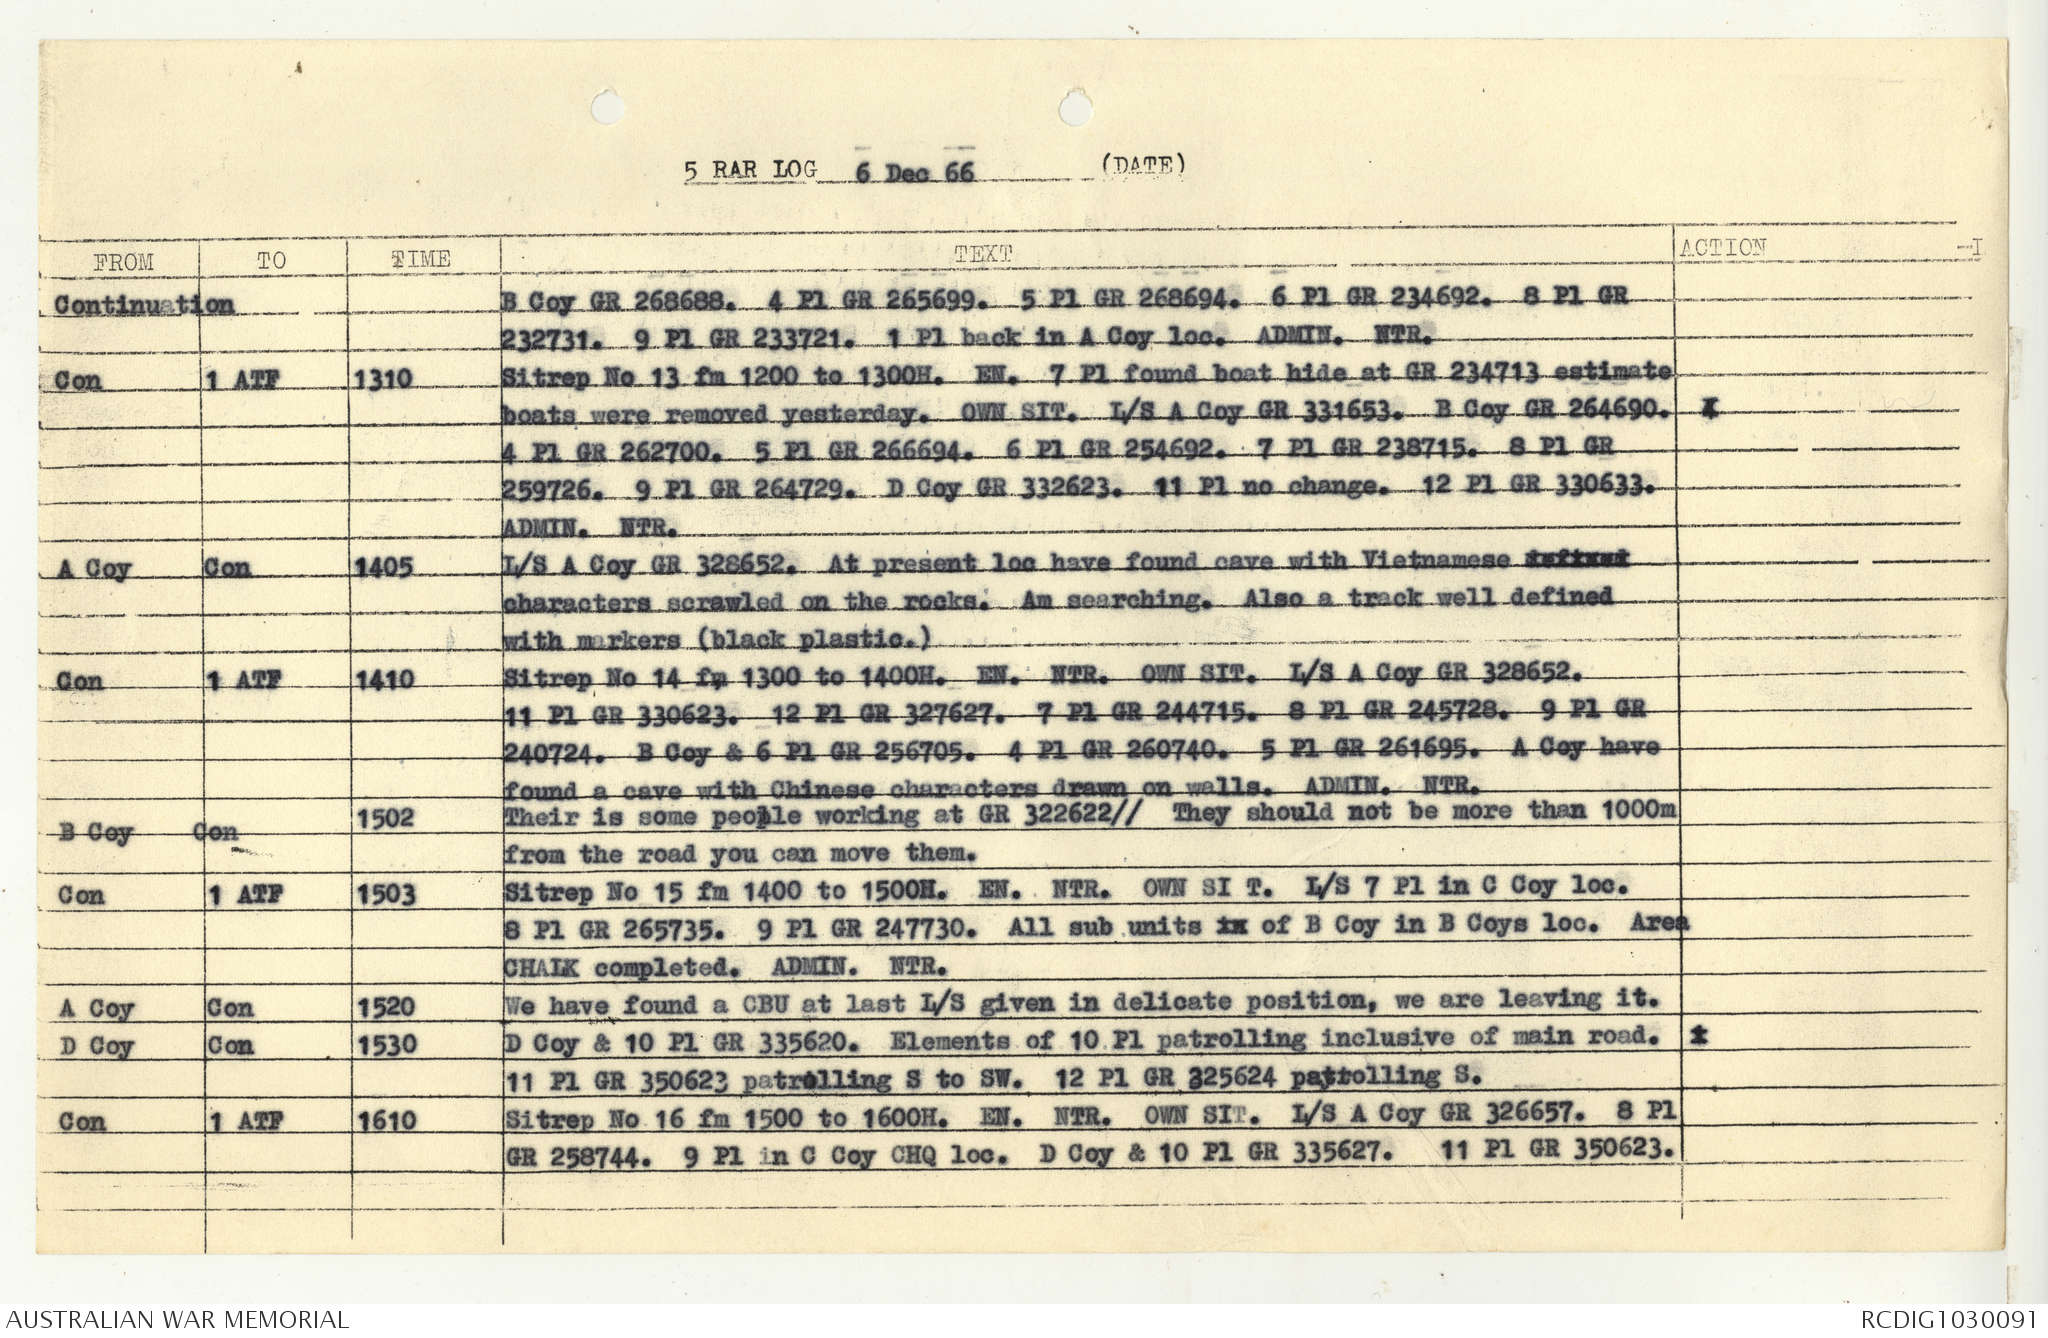 5 RAR LOG 6 Dec 66 (DATE)
FROM TO TIME TEXT ACTION -I
Continuation B Coy GR 268688. 4 Pl GR 265699. 5 Pl GR 268694. 6 Pl GR 234692. 8 Pl GR
232731. 9 Pl GR 233721. 1 Pl back in A Coy loc. ADMIN. NTR.
Con 1 ATF 1310 Sitrep No 13 fm 1200 to 1300H. EN. 7 Pl found boat hide at GR 234713 estimate
boats were removed yesterday. OWN SIT. L/S A Coy GR 331653. B Coy GR 264690.
4 Pl GR 262700. 5 Pl GR 266694. 6 Pl GR 254692. 7 Pl GR 238715. 8 Pl GR
259726. 9 Pl GR 264729. D Coy GR 332623. 11 Pl no change. 12 Pl GR 330633.
ADMIN. NTR.
A Coy Con 1405 L/S A Coy GR 328652. At present loc have found cave with Vietnamese
characters scrawled on the rocks. Am searching. Also a track well defined
with markers (black plastic.)
Con 1 ATF 1410 Sitrep No 14 fm 1300 to 1400H. EN. NTR. OWN SIT. L/S A Coy GR 328652.
11 Pl GR 330623. 12 Pl GR 327627. 7 Pl GR 244715. 8 Pl GR 245728. 9 Pl GR
240724. B Coy & 6 Pl GR 256705. 4 Pl GR 260740. 5 Pl GR 261695. A Coy have
found a cave with Chinese characters drawn on walls. ADMIN. NTR.
B Coy Con 1502 Their is some people working at GR 322622// They should not be more than 1000m
from the road you can move them.
Con 1 ATF 1503 Sitrep No 15 fm 1400 to 1500H. EN. NTR. OWN SI T. L/S 7 Pl in C Coy loc.
8 Pl GR 265735. 9 Pl GR 247730. All sub units of B Coy in B Coys loc. Area
CHALK completed. ADMIN. NTR.
A Coy Con 1520 We have found a CBU at last L/S given in delicate position, we are leaving it.
D Coy Con 1530 D Coy & 10 Pl GR 335620. Elements of 10 Pl patrolling inclusive of main road.
11 Pl GR 350623 patrolling S to SW. 12 Pl GR 325624 patrolling S.
Con 1 ATF 1610 Sitrep No 16 fm 1500 to 1600H. EN. NTR. OWN SIT. L/S A Coy GR 326657. 8 Pl
GR 258744. 9 Pl in C Coy CHQ loc. D Coy & 10 Pl GR 335627. 11 Pl GR 350623.
AUSTRALIAN WAR MEMORIAL RCDIG1030091